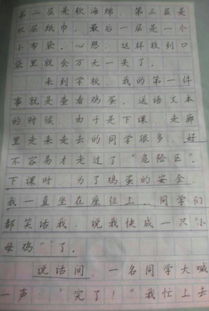 第二层是软海绵，第三层是
双层纸巾，最后一层是一个
小布袋，心想：这样放到口
袋里就会万无一失了。
来到学校，我的第一件
事就是查看鸡蛋，送语文本
的时候，由于是下课，走廊
里走来走去的同学很多，好
不容易才走过了“危险区”。
下课时，为了鸡蛋的安全，
我一直坐在座位上，同学们
都笑话我，说我快成一只“小
母鸡”了。
说话间，一名同学大喊
一声：“完了！”我忙上去